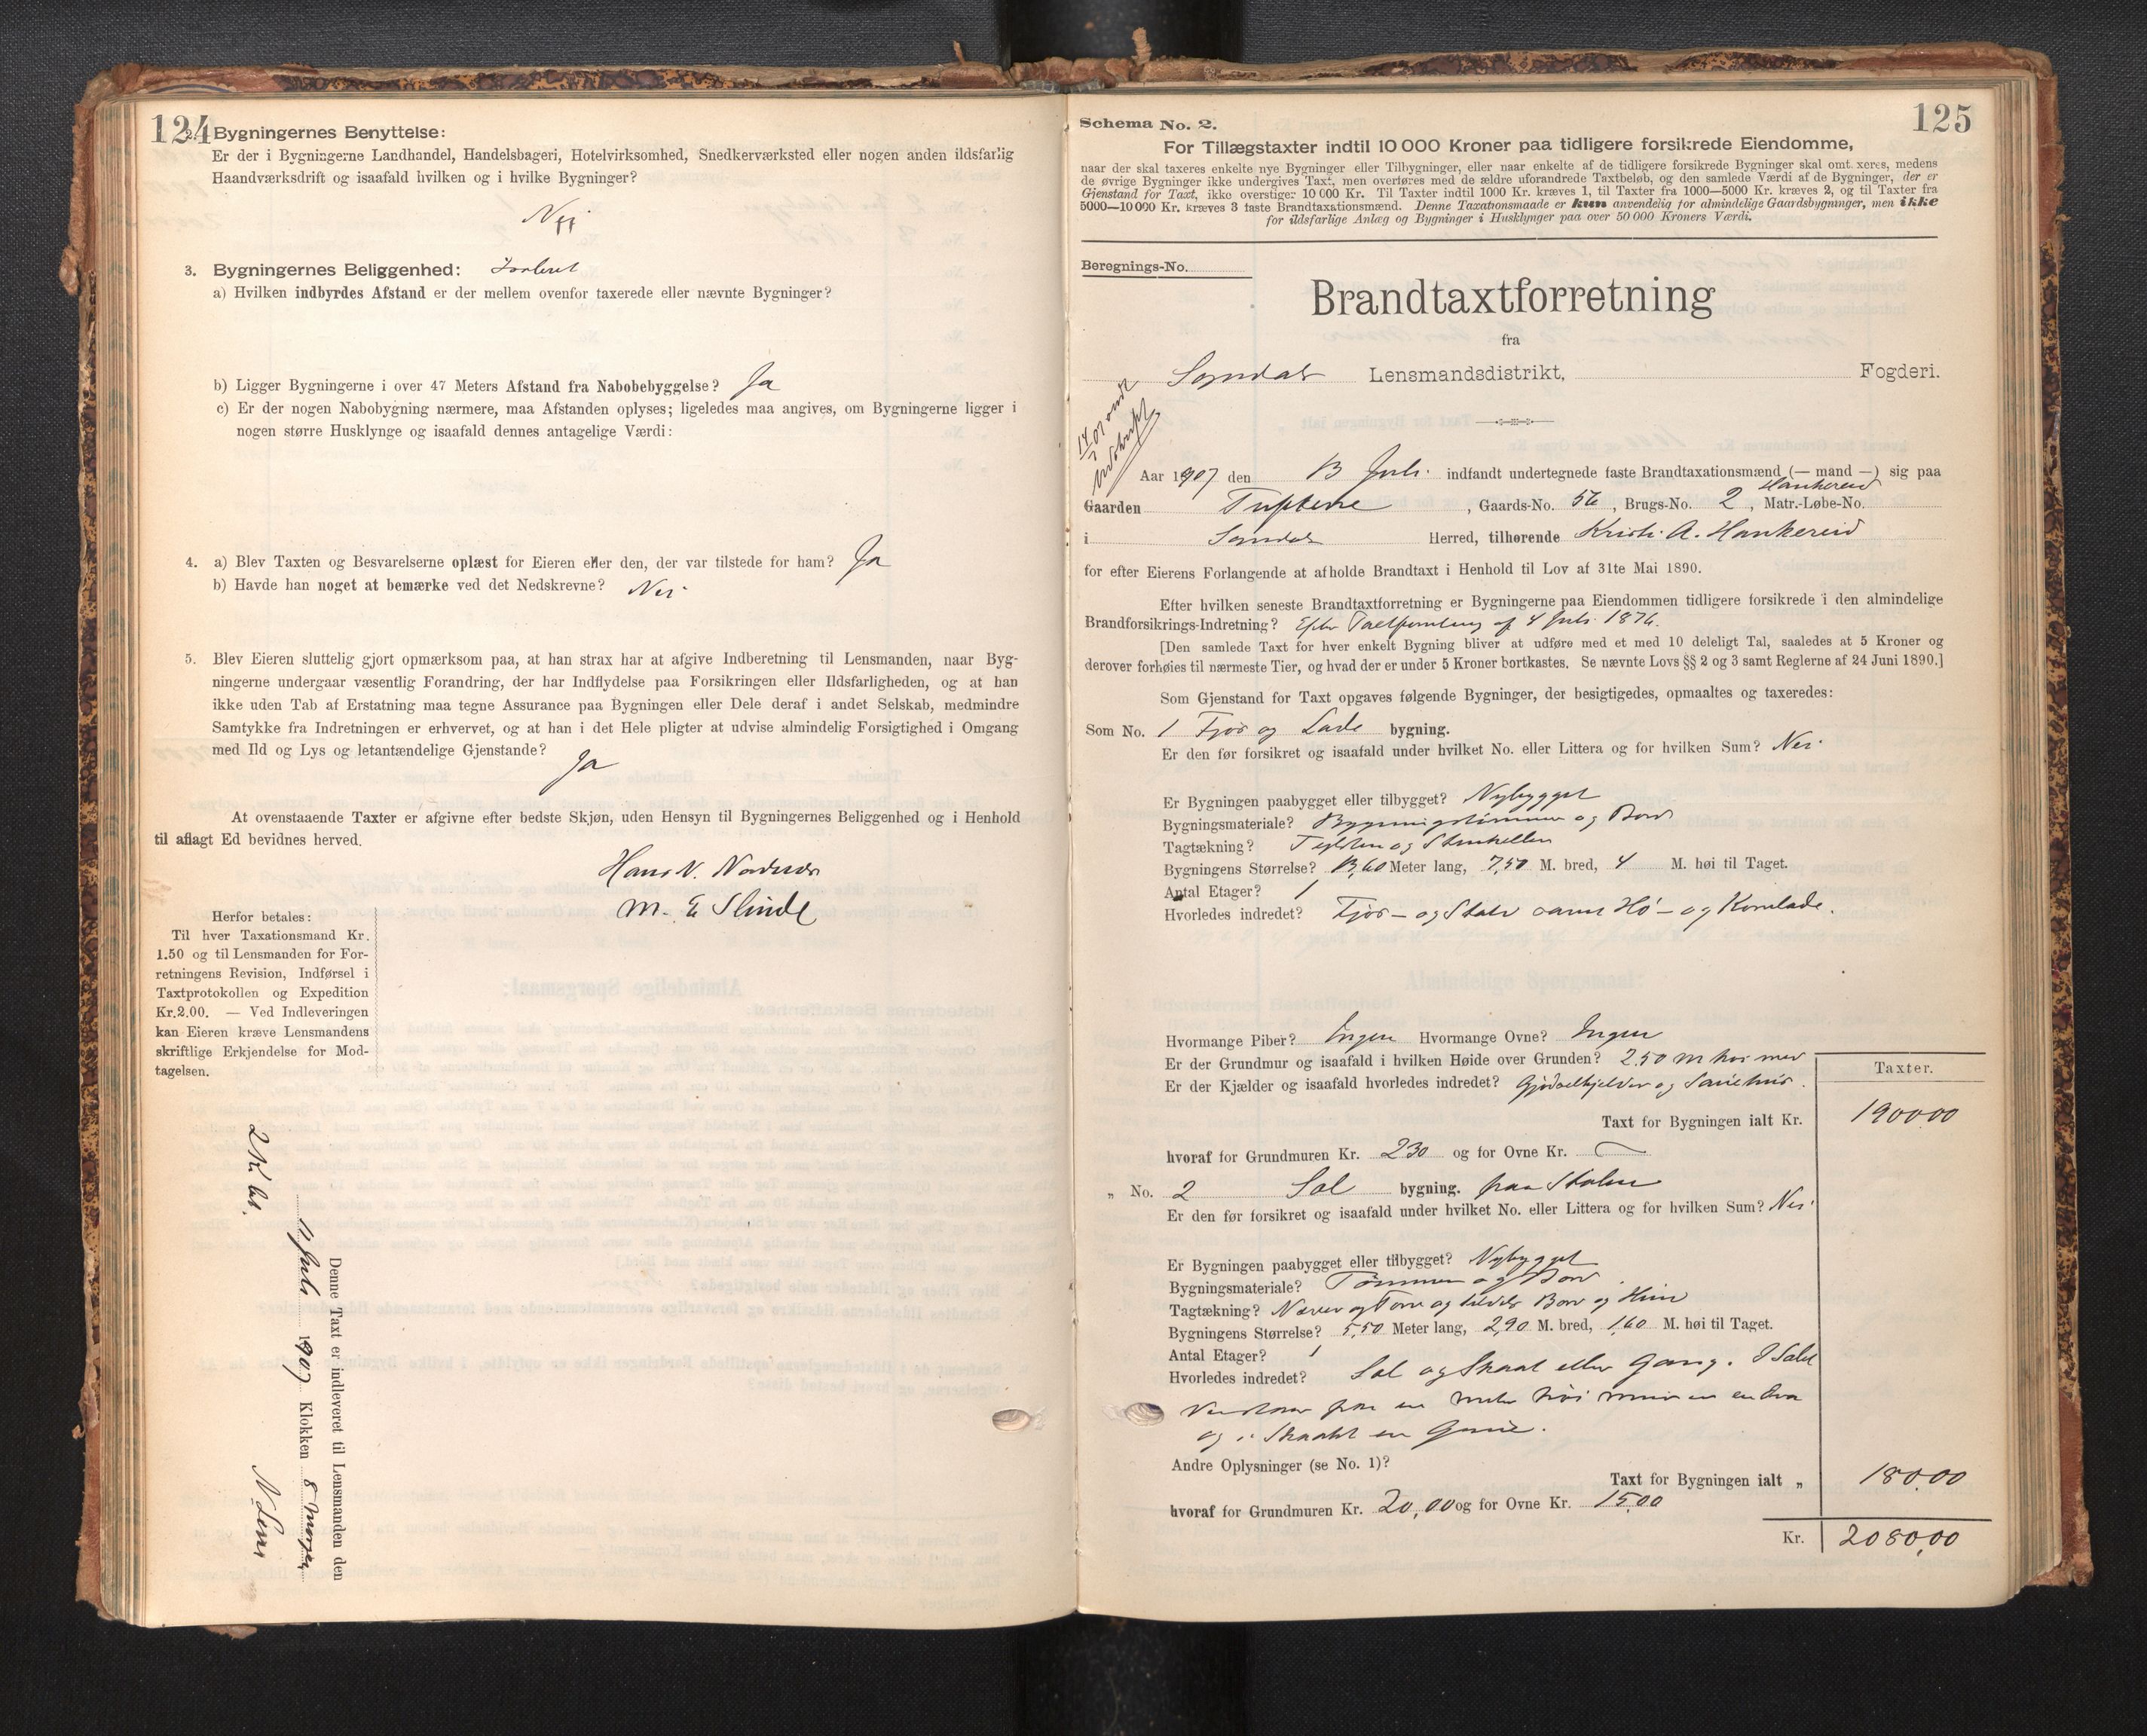 124
2. Bygningernes Benyttelse:
Er der i Bygningerne Landhandel, Handelsbageri, Hotelvirksomhed, Snedkerværksted eller nogen anden ildsfarlig
Haandværksdrift og isaafald hvilken og i hvilke Bygninger?
Nei
3. Bygningernes Beliggenhed: Isoleret
a) Hvilken indbyrdes Afstand er der mellem ovenfor taxerede eller nævnte Bygninger?
b) Ligger Bygningerne i over 47 Meters Afstand fra Nabobebyggelse? Ja
c) Er der nogen Nabobygning nærmere, maa Afstanden oplyses; ligeledes maa angives, om Bygningerne ligger i
nogen større Husklynge og isaafald dennes antagelige Værdi:
4. a) Blev Taxten og Besvarelserne oplæst for Eieren eller den, der var tilstede for ham? Ja
b) Havde han noget at bemærke ved det Nedskrevne? Nei
5. Blev Eieren sluttelig gjort opmærksom paa, at han strax har at afgive Indberetning til Lensmanden, naar Byg-
ningerne undergaar væsentlig Forandring, der har Indflydelse paa Forsikringen eller Ildsfarligheden, og at han
ikke uden Tab af Erstatning maa tegne Assurance paa Bygningen eller Dele deraf i andet Selskab, medmindre
Samtykke fra Indretningen er erhvervet, og at han i det Hele pligter at udvise almindelig Forsigtighed i Omgang
med Ild og Lys og letantændelige Gjenstande?
Ja
At ovenstaaende Taxter er afgivne efter bedste Skjøn, uden Hensyn til Bygningernes Beliggenhed og i Henhold
til aflagt Ed bevidnes herved.
Hans N.
M. E Slinde
Herfor betales:
Til hver Taxationsmand Kr.
1.50 og til Lensmanden for For-
retningens Revision, Indførsel i
Taxtprotokollen og Expedition
Kr.2.00. — Ved Indleveringen
kan Eieren kræve Lensmandens
skriftlige Erkjendelse for Mod-
tagelsen.
Denne Taxt er indleveret til Lensmanden den
Juli 1907 Klokken 8
125
Schema No. 2.
For Tillægstaxter indtil 10 000 Kroner paa tidligere forsikrede Eiendomme,
naar der skal taxeres enkelte nye Bygninger eller Tilbygninger, eller naar enkelte af de tidligere forsikrede Bygninger skal omt. xeres, medens
de øvrige Bygninger ikke undergives Taxt, men overføres med de ældre uforandrede Taxtbeløb, og den samlede Værdi af de Bygninger, der er
Gjenstand for Taxt, ikke overstiger 10 000 Kr. Til Taxter indtil 1000 Kr. kræves 1, til Taxter fra 1000—5000 Kr. kræves 2, og til Taxter fra
5000—10 000 Kr. kræves 3 faste Brandtaxationsmænd. Denne Taxationsmaade er kun anvendelig for almindelige Gaardsbygninger, men ikke
for ildsfarlige Anlæg og Bygninger i Husklynger paa over 50 000 Kroners Værdi.
Beregnings-No.
Brandtaxtforretning
fra
Sogndals Lensmandsdistrikt, Fogderi.
Aar 1907 den Juli indfandt undertegnede faste Brandtaxationsmænd (— mand —) sig paa
Hankereid
Gaarden Tuftene, Gaards-No. 56, Brugs-No. 2, Matr.-Løbe-No.
i Sogndal Herred, tilhørende Kristi A. Hankereid
for efter Eierens Forlangende at afholde Brandtaxt i Henhold til Lov af 31te Mai 1890.
Efter hvilken seneste Brandtaxtforretning er Bygningerne paa Eiendommen tidligere forsikrede i den almindelige
Brandforsikrings-Indretning? Efter Taxtforretning af 4 Juli 1876.
[Den samlede Taxt for hver enkelt Bygning bliver at udføre med et med 10 deleligt Tal, saaledes at 5 Kroner og
derover forhøies til nærmeste Tier, og hvad der er under 5 Kroner bortkastes. Se nævnte Lovs §§ 2 og 3 samt Reglerne af 24 Juni 1890.]
Som Gjenstand for Taxt opgaves følgende Bygninger, der besigtigedes, opmaaltes og taxeredes:
Som No. 1 Fjøs og Lade bygning.
Er den før forsikret og isaafald under hvilket No. eller Littera og for hvilken Sum? Nei
Er Bygningen paabygget eller tilbygget? Nybygget
Bygningsmateriale? Bygningstømmer og Bord
Tagtækning? Teglsten og Stenheller
Bygningens Størrelse? 13,60 Meter lang, 7,50 M. bred, 4 M. høi til Taget.
Antal Etager? 1
Hvorledes indredet? Fjøs- og Stald samt Hø- og Kornlade.
Hvormange Piber? Ingen Hvormange Ovne? Ingen
Er der Grundmur og isaafald i hvilken Høide over Grunden? 2.50 m høi mur
Er der Kjælder og isaafald hvorledes indredet? Gjødselkjelder og
Taxter.
Taxt for Bygningen ialt Kr. 1900.00
hvoraf for Grundmuren Kr. 230 og for Ovne Kr. —
„ No. 2 Sel bygning. paa Stølen
Er den før forsikret og isaafald under hvilket No. eller Littera og for hvilken Sum? Nei
Er Bygningen paabygget eller tilbygget? Nybygget
Bygningsmateriale? Tømmer og Bord
Tagtækning? Næver og Torv og tildels Bord og
Bygningens Størrelse? 5,50 Meter lang, 2,90 M. bred, 1,60 M. høi til Taget.
Antal Etager? 1
Hvorledes indredet? Sel og Skaat eller Gang. I Selet
en meter høi mur en
og i Skaatet en Grue.
Andre Oplysninger (se No. 1)?
Taxt for Bygningen ialt „ 180.00
hvoraf for Grundmuren Kr. 20,00 og for Ovne Kr. 15.00
Kr. 2080,00